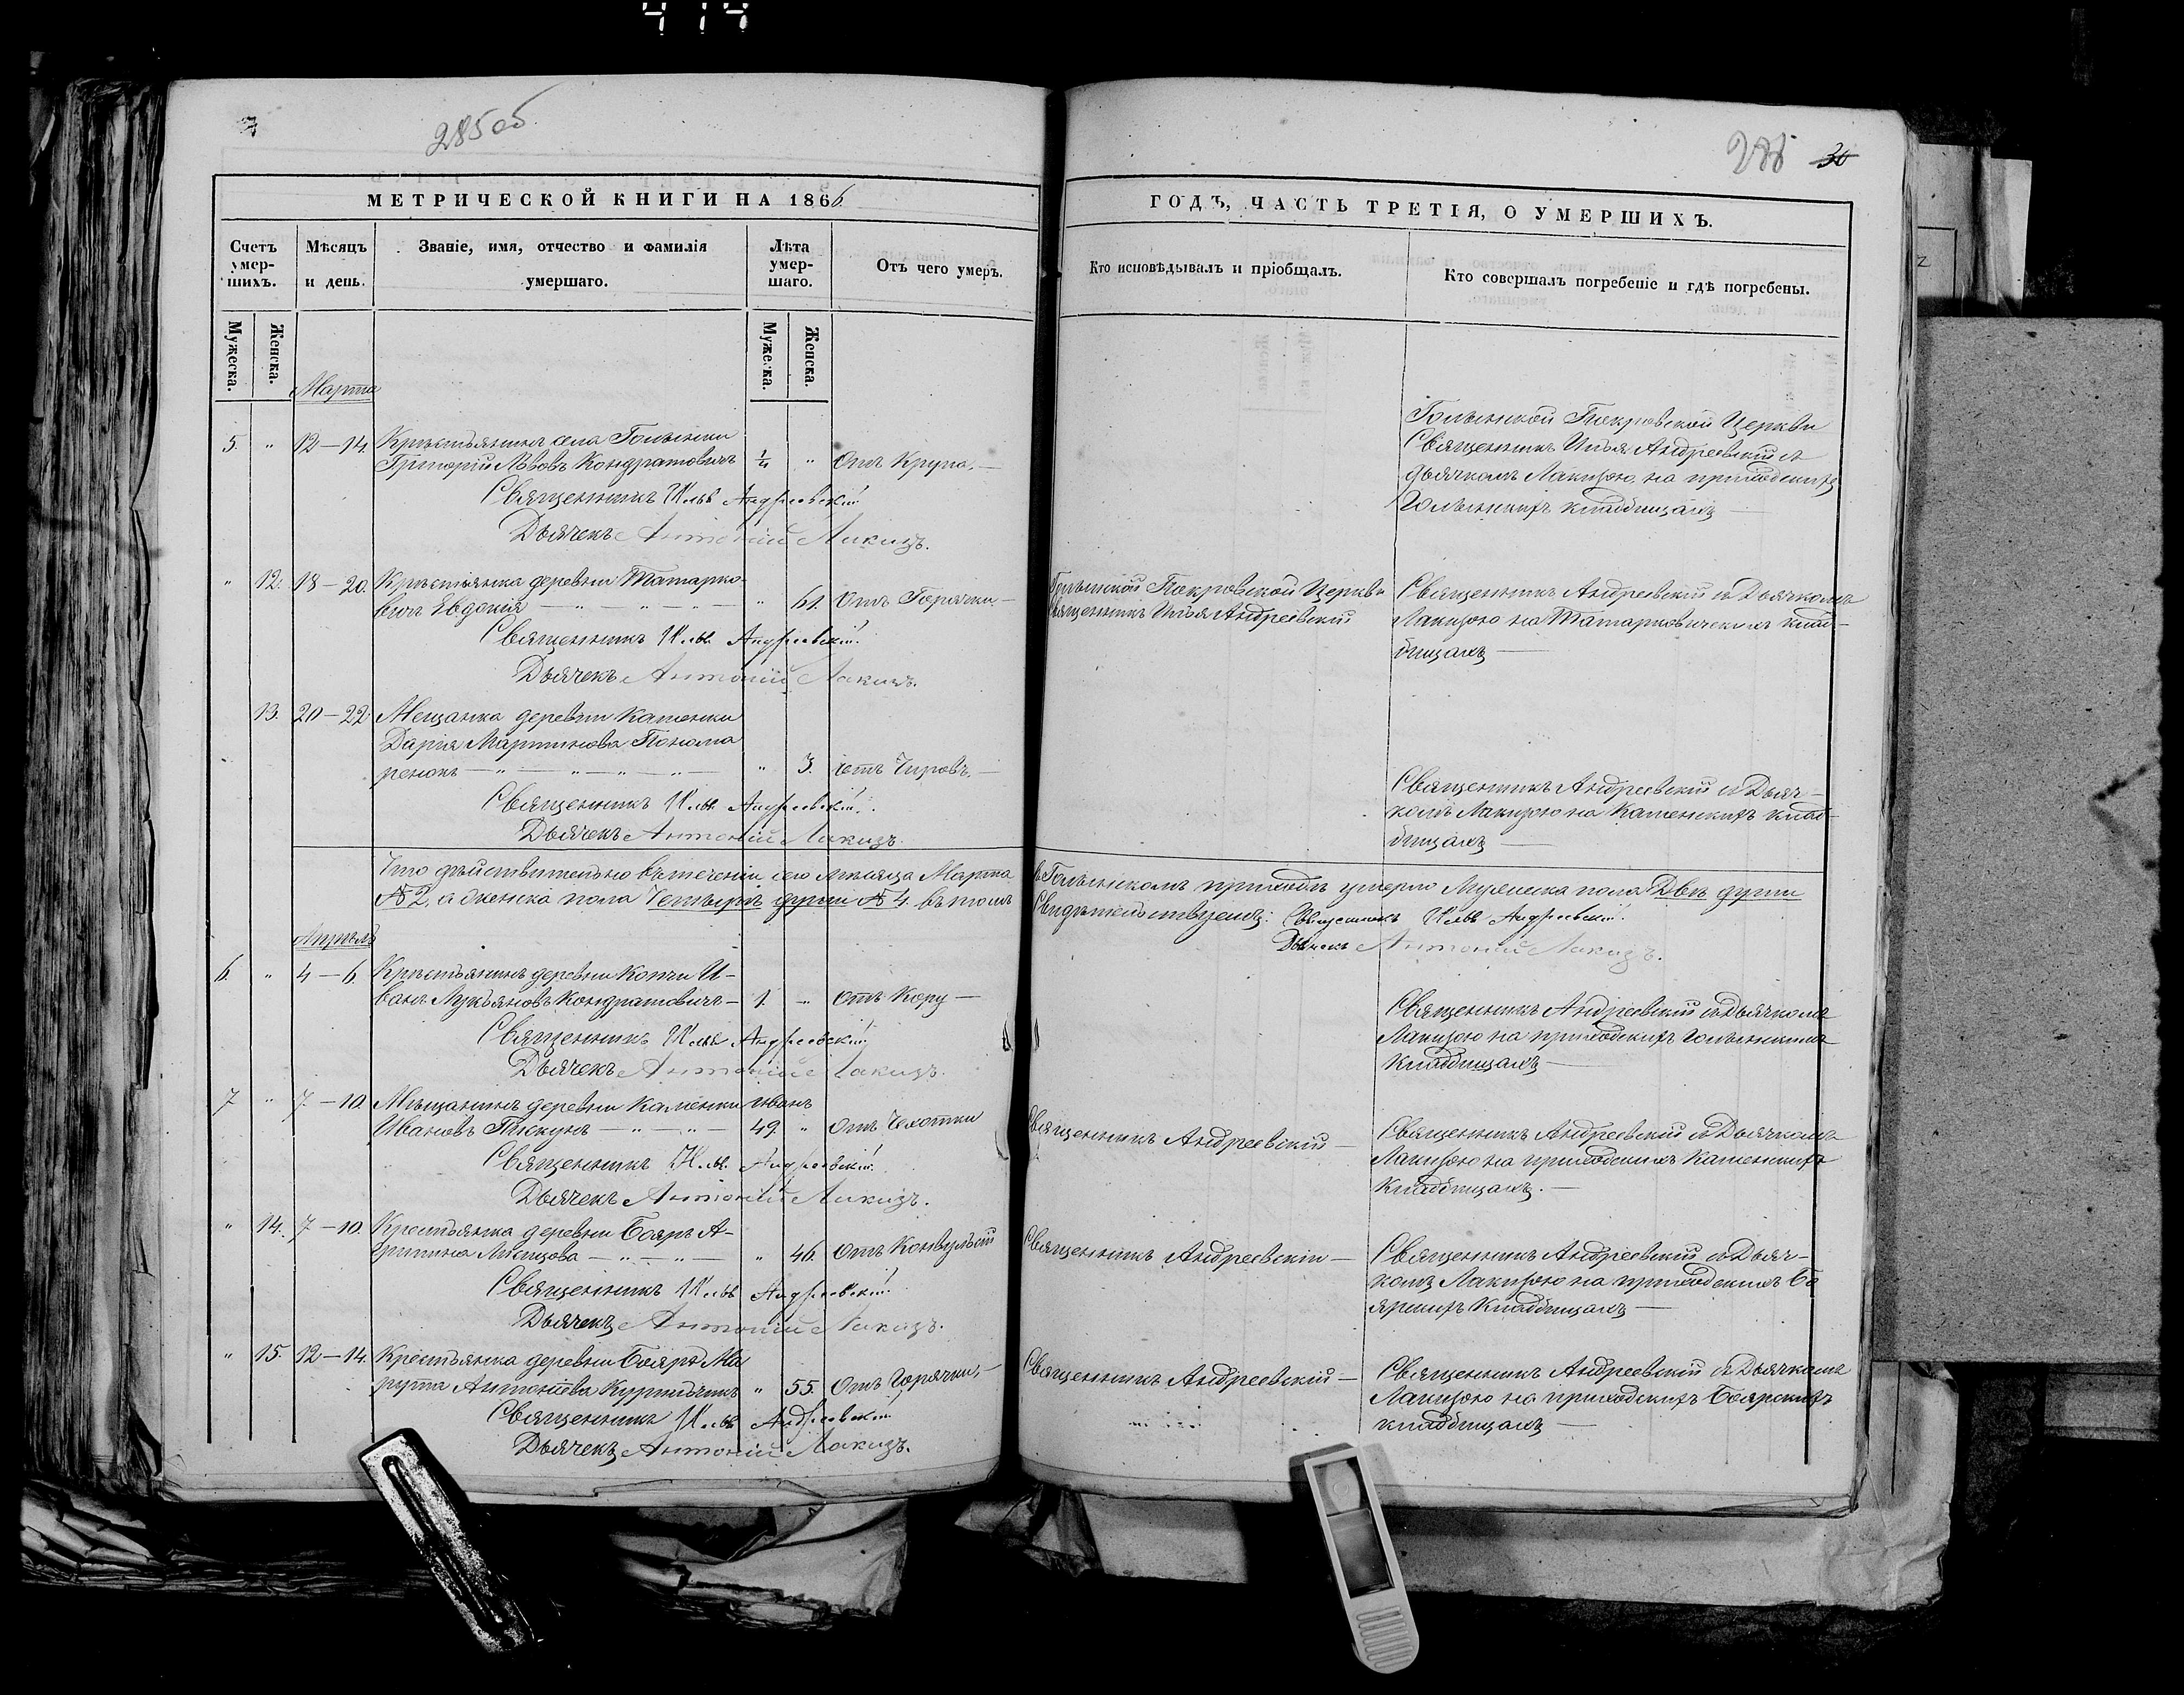 414
285 об
286 30
МЕТРИЧЕСКОЙ КНИГИ НА 1866
ГОДЪ, ЧАСТЬ ТРЕТІЯ, О УМЕРШИХЪ.
Счетъ умер-шихъ.
Мѣсяцъ и день.
Званіе, имя, отчество и фамилія умершаго.
Лѣта умер-шаго.
Отъ чего умеръ.
Кто исповѣдывалъ и пріобщалъ.
Кто совершалъ погребеніе и гдѣ погребены.
Мужеска.
Женска.
Мужеска.
Женска.
Марта
5. „ 12—14. Крестьянинъ села Голынки
Григорій Львовъ Кондратовичъ 1/4 „ Отъ Крупа.—
Священникъ Илья Андреевскій
Дьячекъ Антоній Лакизъ.
Голынской Покровской Церкви
Священникъ Илья Андреевскій съ
дьячкомъ Лакизою на приходскихъ
Голынкихъ кладбищахъ —
„ 12. 18—20. Крестьянка деревни Татарко-
вичъ Евдокія — „ — „ — „ — „ 61. Отъ Горячки—
Священникъ Илья Андреевскій
Дьячекъ Антоній Лакизъ.
Голынской Покровской Церкви
Священникъ Илья Андреевскій
Священникъ Андреевскій съ Дьячкомъ
Лакизою на Татарковическихъ клад-
бищахъ —
13. 20—22 Мещанка деревни Каменки
Дарія Мартинова Понома
ренокъ — „ — „ — „ — „ — „ 3. отъ Чировъ.—
Священникъ Илья Андреевскій
Дьячекъ Антоній Лакизъ.
Священникъ Андреевскій съ Дьяч-
комъ Лакизою на Каменскихъ клад-
бищахъ —
Что дѣйствительно въ теченіи сего мѣсяца Марта
въ Голынскомъ приходѣ умерло Мужеска пола Двѣ души
№ 2, а женска пола Четыре души № 4. въ томъ
Свидѣтельствуемъ: Священникъ Илья Андреевскій
Дьячекъ Антоній Лакизъ.
Апрѣль
6. „ 4—6. Крестьянинъ деревни И-
ванъ Лукьяновъ Кондратовичъ— 1. „ отъ Кору—
Священникъ Илья Андреевскій
Дьячекъ Антоній Лакизъ.
Священникъ Андреевскій съ Дьячкомъ
Лакизою на приходскихъ
Кладбищахъ —
7 „ 7—10. Мѣщанинъ деревни Каменки Иванъ
Ивановъ — „ — „ — 49. „ Отъ Чехотки
Священникъ Илья Андреевскій
Дьячекъ Антоній Лакизъ.
Священникъ Андреевскій —
Священникъ Андреевскій съ Дьячкомъ
Лакизою на приходскихъ Каменскихъ
Кладбищахъ.—
„ 14. 7—10. Крестьянка деревни Бояръ А-
грипина — „ — „ — „ 46. Отъ Конвульсій
Священникъ Илья Андреевскій
Дьячекъ Антоній Лакизъ.
Священникъ Андреевскій —
Священникъ Андреевскій съ Дьяч-
комъ Лакизою на приходскихъ Бо
ярскихъ Кладбищахъ —
„ 15. 12—14. Крестьянка деревни Бояръ Ма
рута Антонѣева „ 55. Отъ Горячки,—
Священникъ Илья Андреевскій
Дьячекъ Антоній Лакизъ.
Священникъ Андреевскій —
Священникъ Андреевскій съ Дьячкомъ
Лакизою на приходскихъ Боярскихъ
кладбищахъ —